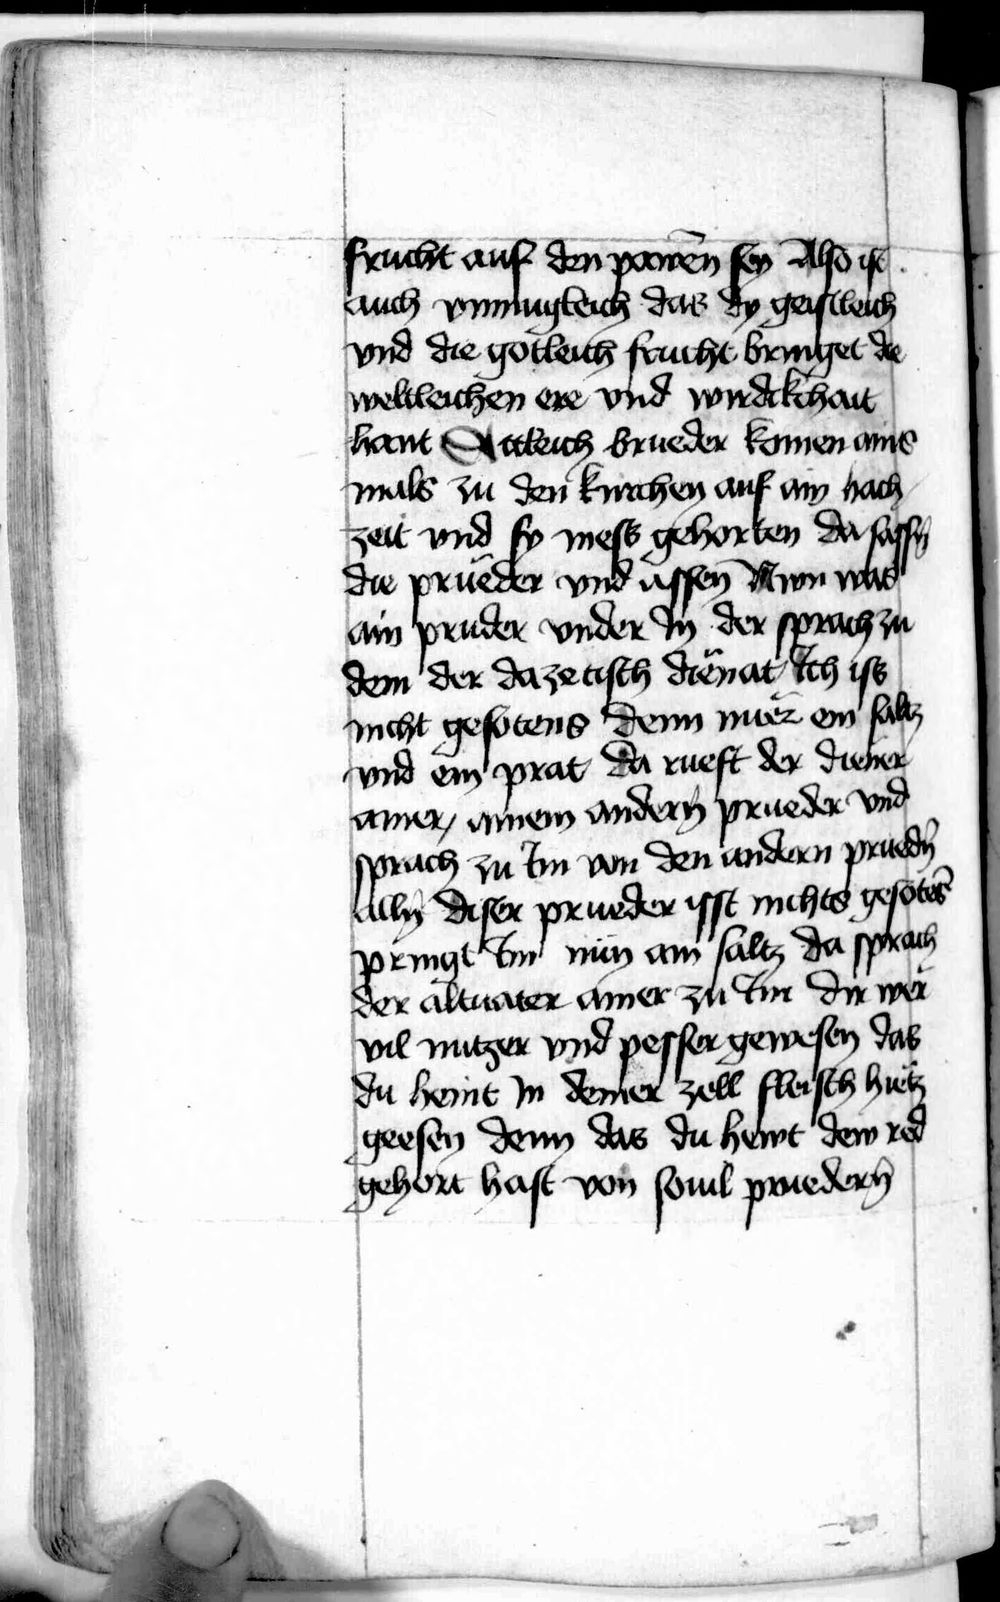 frucht auf den pawmē sey Also ist
auch vnmugleich das dy geistleich
vnd die gotleich frucht bringet die
weltleichen ere vnd wirdckhait
hant Ettleich brueder komen ains
mals zu den kirchen auf ain hach
zeit vnd sy mess gehorten da sassn̄
die prüeder vnd assen Nwn was
ain pruder vnder In der sprach zu
dem der dazetisch dienat Ich iss
nicht gesotens denn nuer ein saltz
vnd ein prat da rueft der diener
ainer, ainem andern̄ prueder vnd
sprach zu Im von den andern pruedn̄
alln̄ diser prueder isst nichts gesotēs
pringt Im nün ain saltz da sprach
der altuater ainer zu Im dir wër
vil nutzer vnd pesser gewesen das
du heint In deiner zell fleisch hietz
geesen denn das du hewt dew red
gehort hast von souil pruedern̄